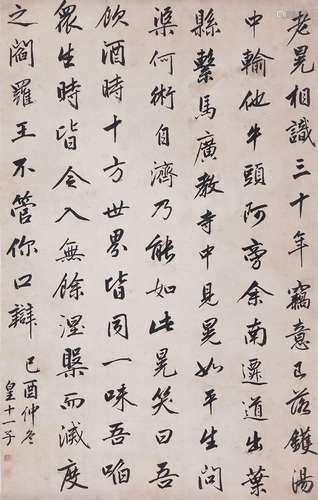 老晃相識三十年竊意已落鑊湯
中輪他牛頭阿旁余南遷道出葉
縣繫馬廣教寺中見晃如平生問
渠何術自濟乃能如此晃笑曰吾
飲酒時十方世界皆同一味吾啗
眾生時皆令入無餘涅槃而滅度
之閻羅王不管你口辯
己酉仲冬
皇十一子